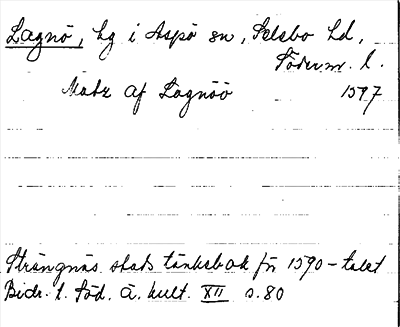 Lagnö, hg i Aspö sn, Selebo hd,
Söderm. l.
Matz af Lagnöö 1597
Strängnäs stads tänkebok för 1590-talet
Bidr. t. Söd. ä. kult. XII s. 80